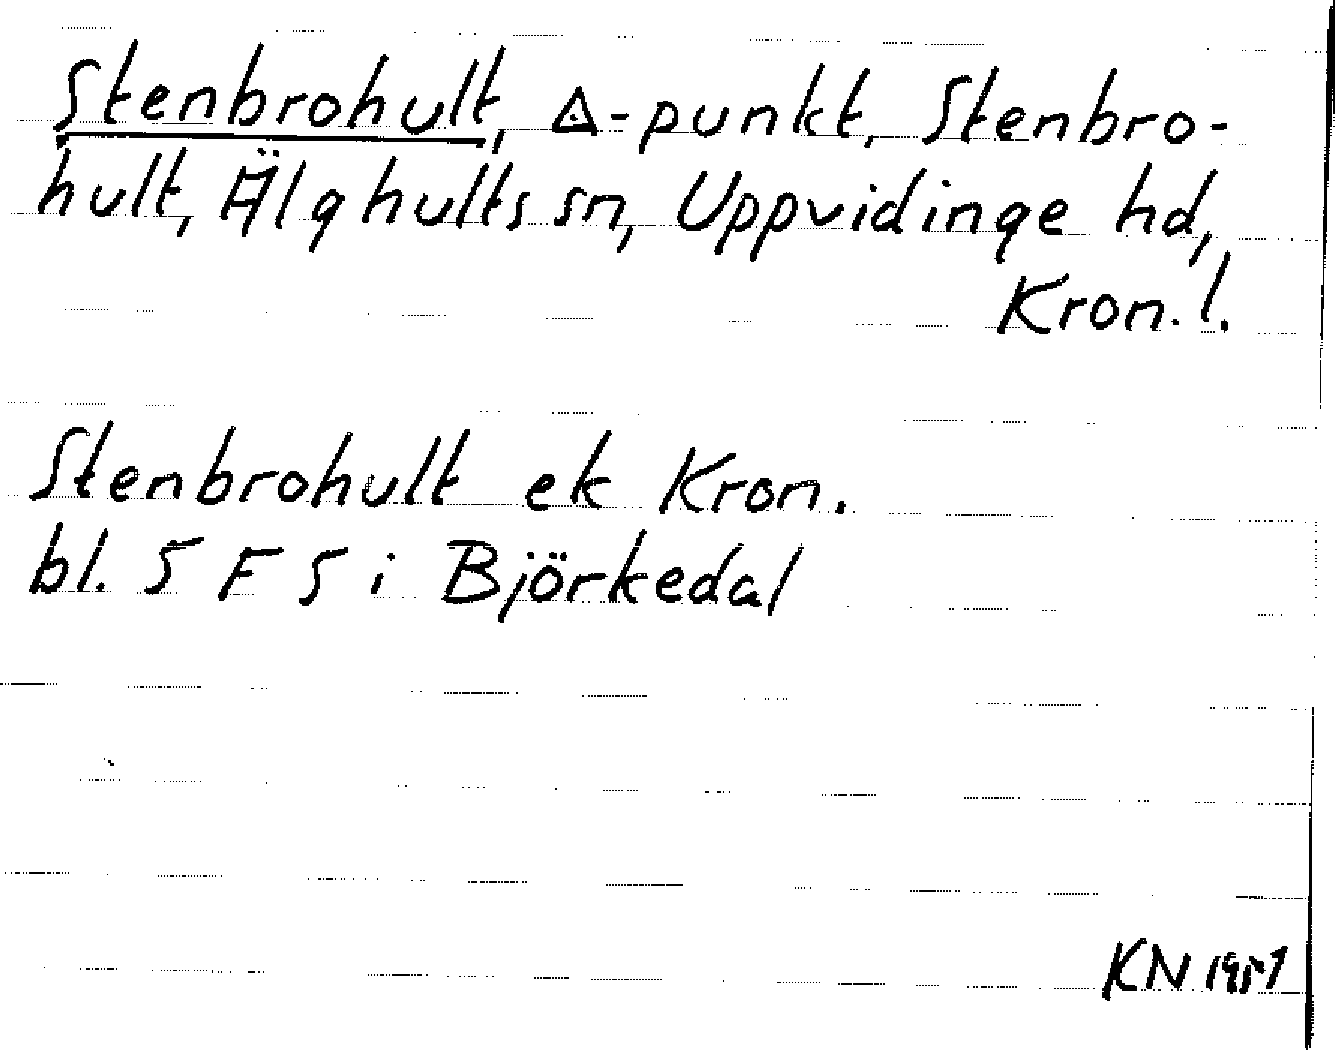 Stenbrohult, ∆-punkt, Stenbro-
hult, Älghults sn, Uppvidinge hd,
Kron. l.
Stenbrohult ek Kron.
bl. 5 F 5 i Björkedal
KN 1951